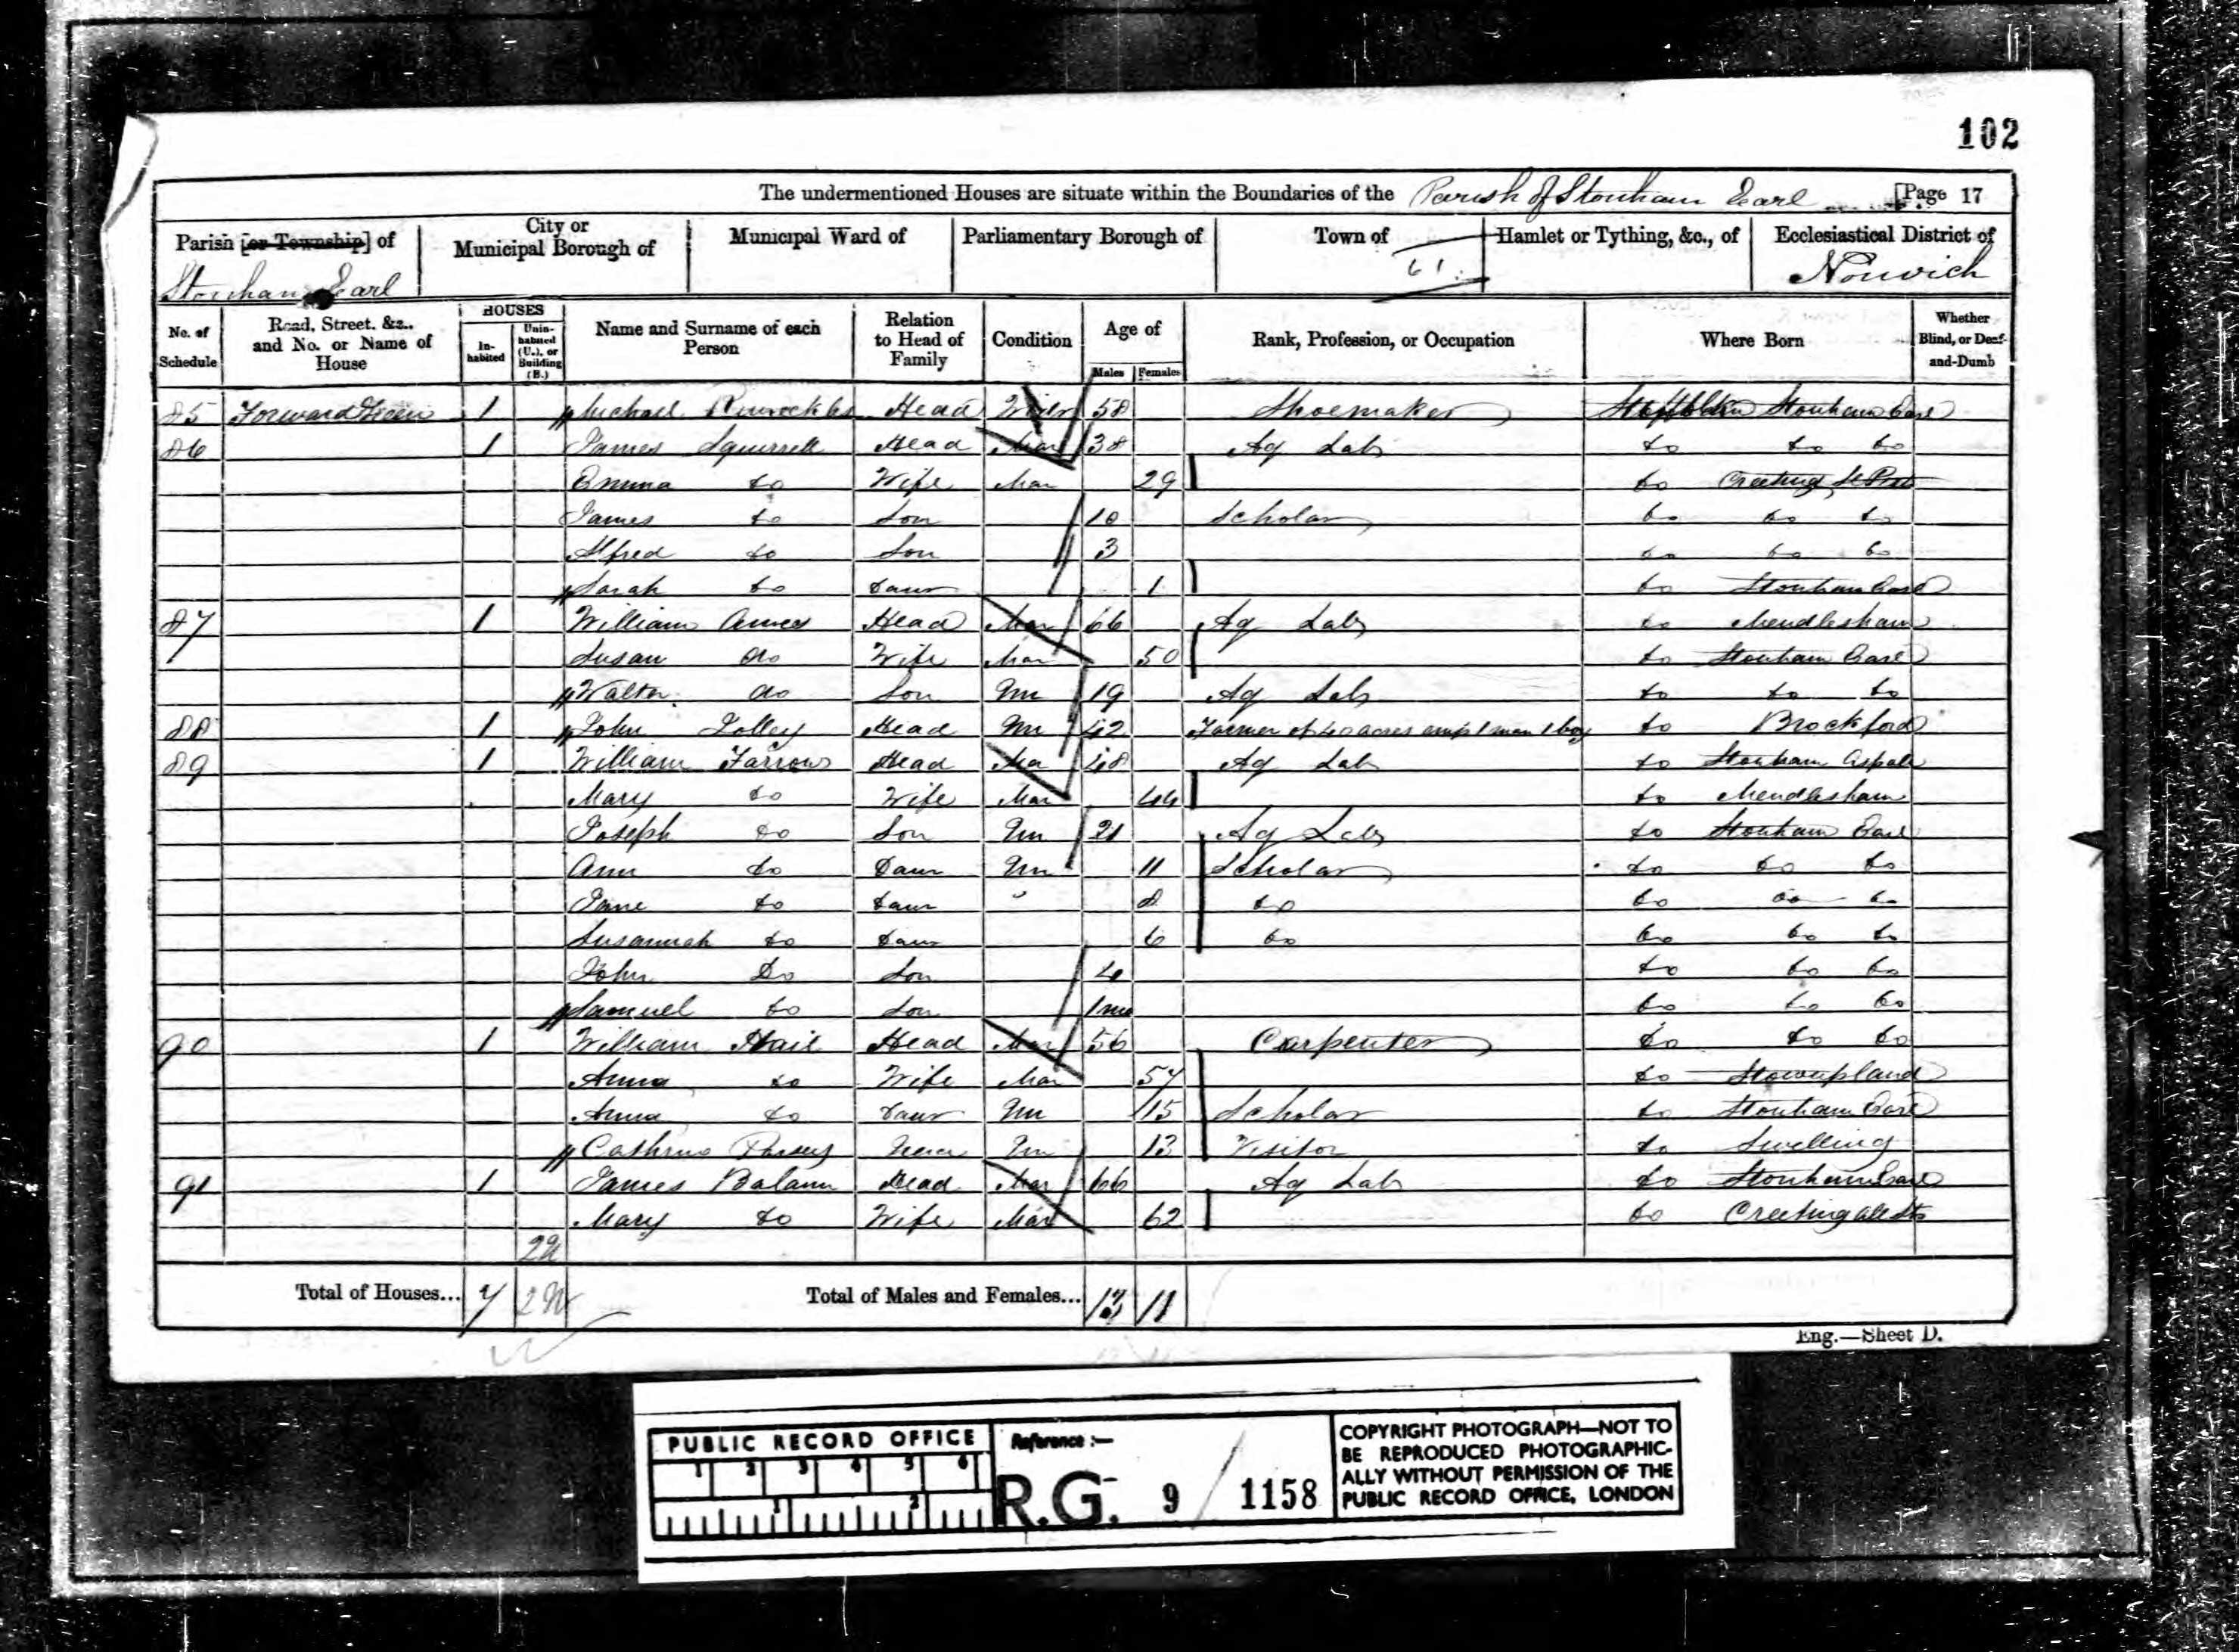 102
The undermentioned Houses are situate within the Boundaries of the Parish of Stonham Earl [Page 17
Parish [or Township] of Stonham Earl
City or Municipal Borough of
Municipal Ward of
Parliamentary Borough of
Town of 61.
Hamlet or Tything, &c., of
Ecclesiastical District of Norwich
No. of Schedule
Road, Street, &c., and No. or Name of House
HOUSES
In-habited
Unin-habited (U.), or Building (B.)
Name and Surname of each Person
Relation to Head of Family
Condition
Age of
Males Females
Rank, Profession, or Occupation
Where Born
Whether Blind, or Deaf-and-Dumb
85 Forward Green 1 Michael Head Widr 58 Shoemaker Suffolk Stonham Earl
86 1 James Squirrell Head Mar 38 Ag Lab do do do
Emma do Wife Mar 29 do Creeting St
James do Son 10 Scholar do do do
Alfred do Son 3 do do do
Sarah do Daur 1 do Stonham Earl
87 1 William Head Mar 66 Ag Lab do Mendlesham
Susan do Wife Mar 50 do Stonham Earl
Walter do Son Un 19 Ag Lab do do do
88 1 John Head Un 42 Farmer of 40 acres emp 1 man 1 boy do Brockford
89 1 William Farrow Head Ma 48 Ag Lab do Stonham Aspall
Mary do Wife Mar 44 do Mendlesham
Joseph do Son Un 21 Ag Lab do Stonham Earl
Ann do Daur Un 11 Scholar do do do
Jane do Daur 8 do do do do
Susannah do Daur 6 do do do do
John Do Son 4 do do do
Samuel do Son 1 mo do do do
90 1 William Head Mar 56 Carpenter do do do
Anna do Wife Mar 57 do Stowupland
Anna do Daur Un 15 Scholar do Stonham Earl
Un 13 Visitor do Swelling
91 1 James Balaam Head Mar 66 Ag Lab do Stonham Earl
Mary do Wife Mar 62 do Creeting All Sts
Total of Houses... 7
Total of Males and Females... 13 11
Eng.—Sheet D.
PUBLIC RECORD OFFICE
1 2 3 4 5 6
1 2
Reference :—
R.G. 9 / 1158
COPYRIGHT PHOTOGRAPH—NOT TO
BE REPRODUCED PHOTOGRAPHIC-
ALLY WITHOUT PERMISSION OF THE
PUBLIC RECORD OFFICE, LONDON